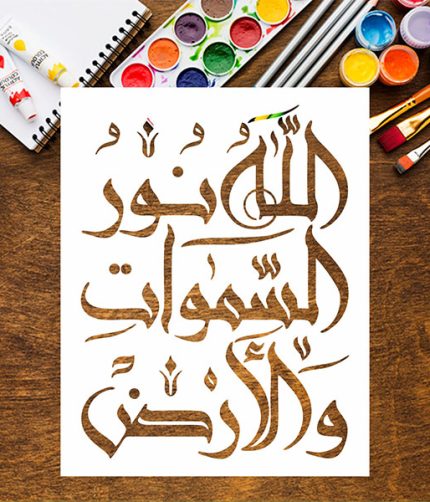 اللَّهُ نُورُ
السَّمَوَاتِ
وَالْأَرْضِ